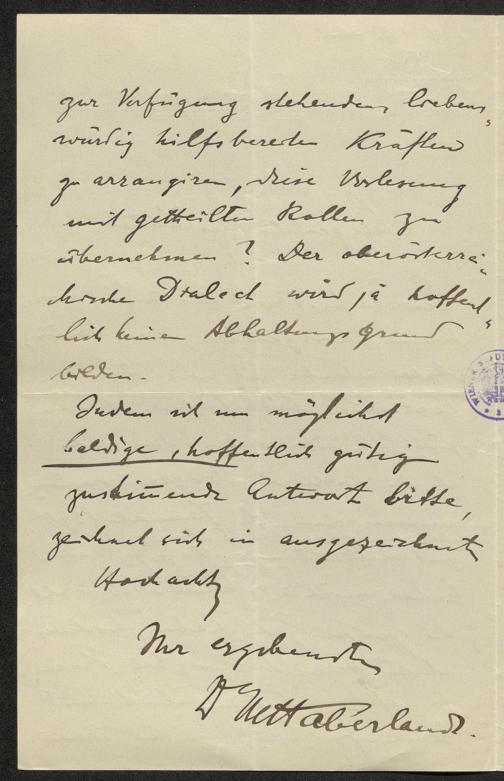 zur Verfügung stehenden, liebens-
würdig hilfsbereiten Kräften
zu arrangiren, diese Vorlesung
mit getheilten Rollen zu
übernehmen? Der oberösterrei-
chische Dialect wird ja hoffent-
lich keinen Abhaltungsgrund
bilden.
Indem ich um möglichst
baldige, hoffentlich gütig
zustimmende Antwort bitte,
zeichnet sich in ausgezeichneter
Hochachtg
Ihr ergebenster
Dr M Haberlandt.
WIENER